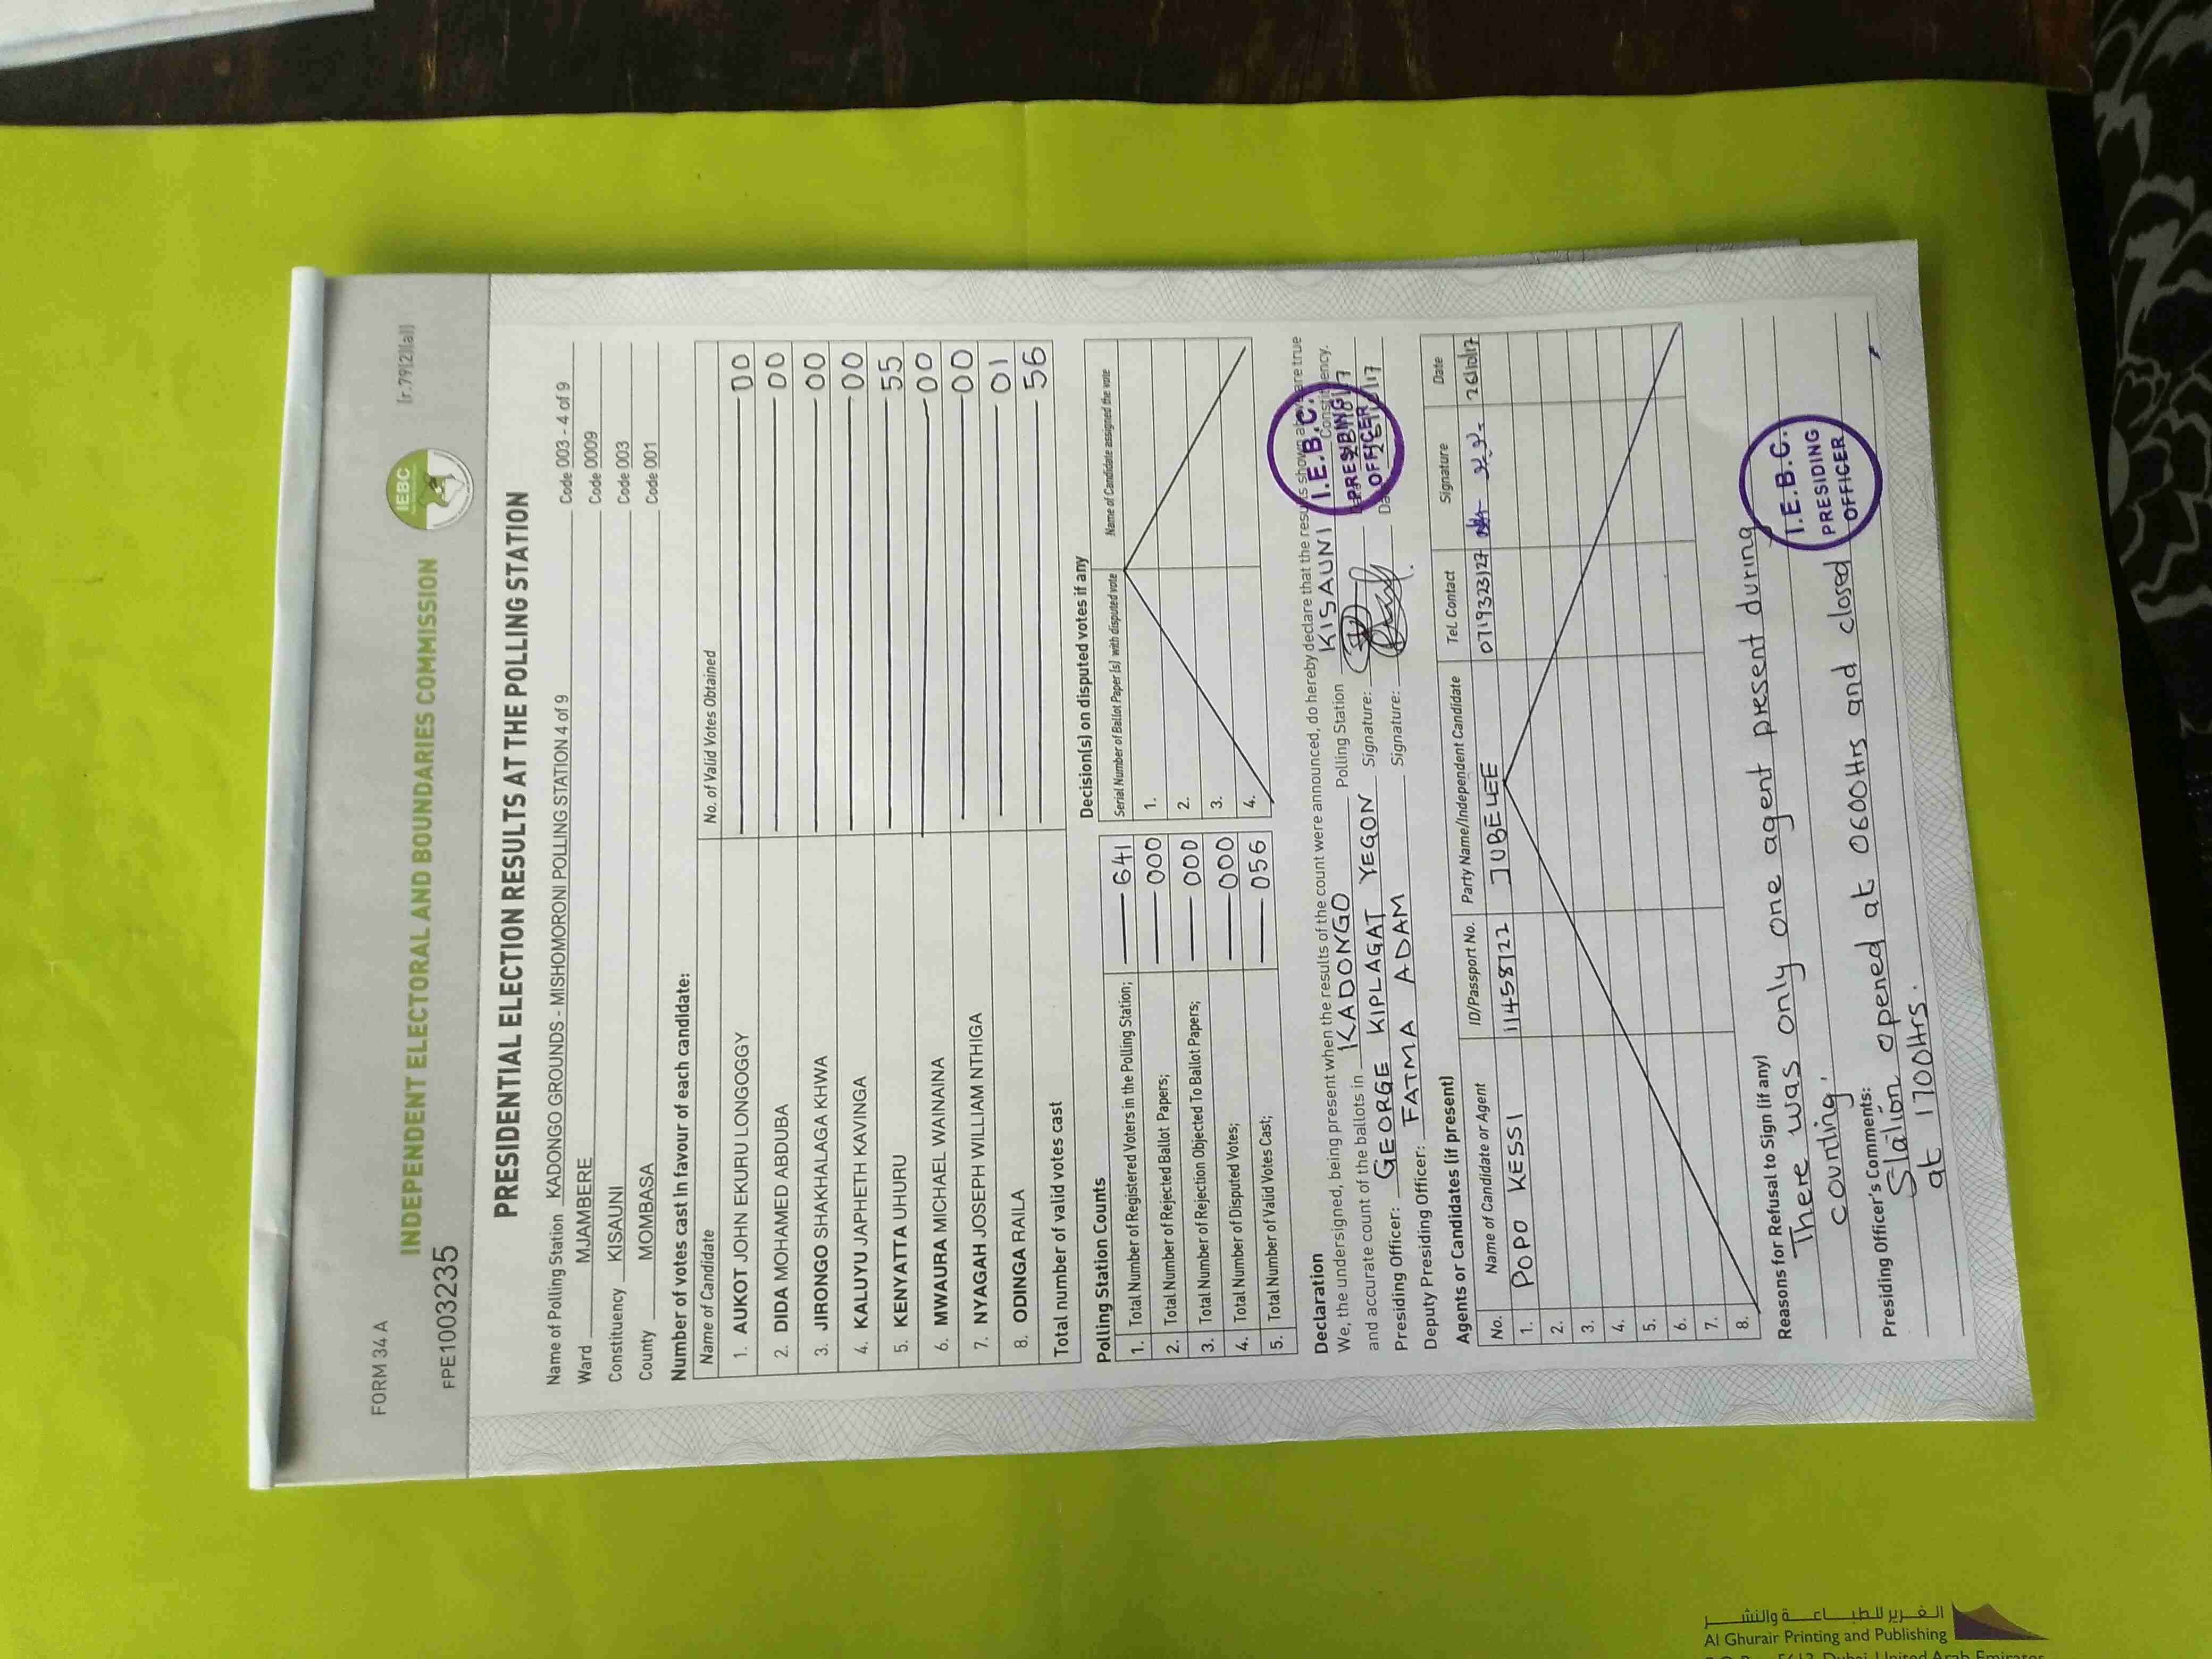 FORM 34 A
[r.79(2)(a)]
IEBC
INDEPENDENT ELECTORAL AND BOUNDARIES COMMISSION
FPE1003235
PRESIDENTIAL ELECTION RESULTS AT THE POLLING STATION
Name of Polling Station KADONGO GROUNDS - MISHOMORONI POLLING STATION 4 of 9 Code 003 - 4 of 9
Ward MJAMBERE Code 0009
Constituency KISAUNI Code 003
County MOMBASA Code 001
Number of votes cast in favour of each candidate:
Name of Candidate No. of Valid Votes Obtained
1. AUKOT JOHN EKURU LONGOGGY 00
2. DIDA MOHAMED ABDUBA 00
3. JIRONGO SHAKHALAGA KHWA 00
4. KALUYU JAPHETH KAVINGA 00
5. KENYATTA UHURU 55
6. MWAURA MICHAEL WAINAINA 00
7. NYAGAH JOSEPH WILLIAM NTHIGA 00
8. ODINGA RAILA 01
Total number of valid votes cast 56
Polling Station Counts
1. Total Number of Registered Voters in the Polling Station; 641
2. Total Number of Rejected Ballot Papers; 000
3. Total Number of Rejection Objected To Ballot Papers; 000
4. Total Number of Disputed Votes; 000
5. Total Number of Valid Votes Cast; 056
Decision(s) on disputed votes if any
Serial Number of Ballot Paper (s) with disputed vote Name of Candidate assigned the vote
1.
2.
3.
4.
Declaration
We, the undersigned, being present when the results of the count were announced, do hereby declare that the results shown above are true
and accurate count of the ballots in KADONGO Polling Station KISAUNI Constituency.
Presiding Officer: GEORGE KIPLAGAT YEGON Signature:
Deputy Presiding Officer: FATMA ADAM Signature:
I.E.B.C.
PRESIDING
OFFICER
Agents or Candidates (if present)
No. Name of Candidate or Agent ID/Passport No. Party Name/Independent Candidate Tel. Contact Signature Date
1. POPO KESSI 11458122 JUBELEE 0719323127 26/10/17
2.
3.
4.
5.
6.
7.
8.
Reasons for Refusal to Sign (if any)
There was only one agent present during
counting.
Presiding Officer's Comments:
Station opened at 0600Hrs and closed
at 1700Hrs.
I.E.B.C.
PRESIDING
OFFICER
الغرير للطباعة والنشر
Al Ghurair Printing and Publishing